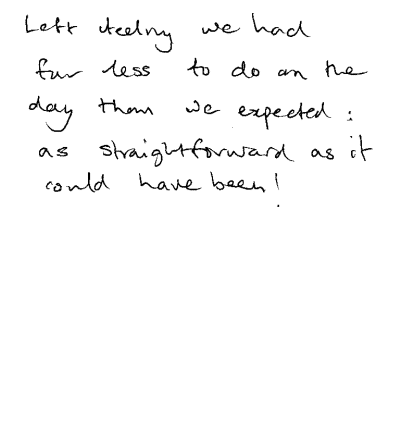 Left feeling we had
far less to do on the
day than we expected :
as straightforward as it
could have been!